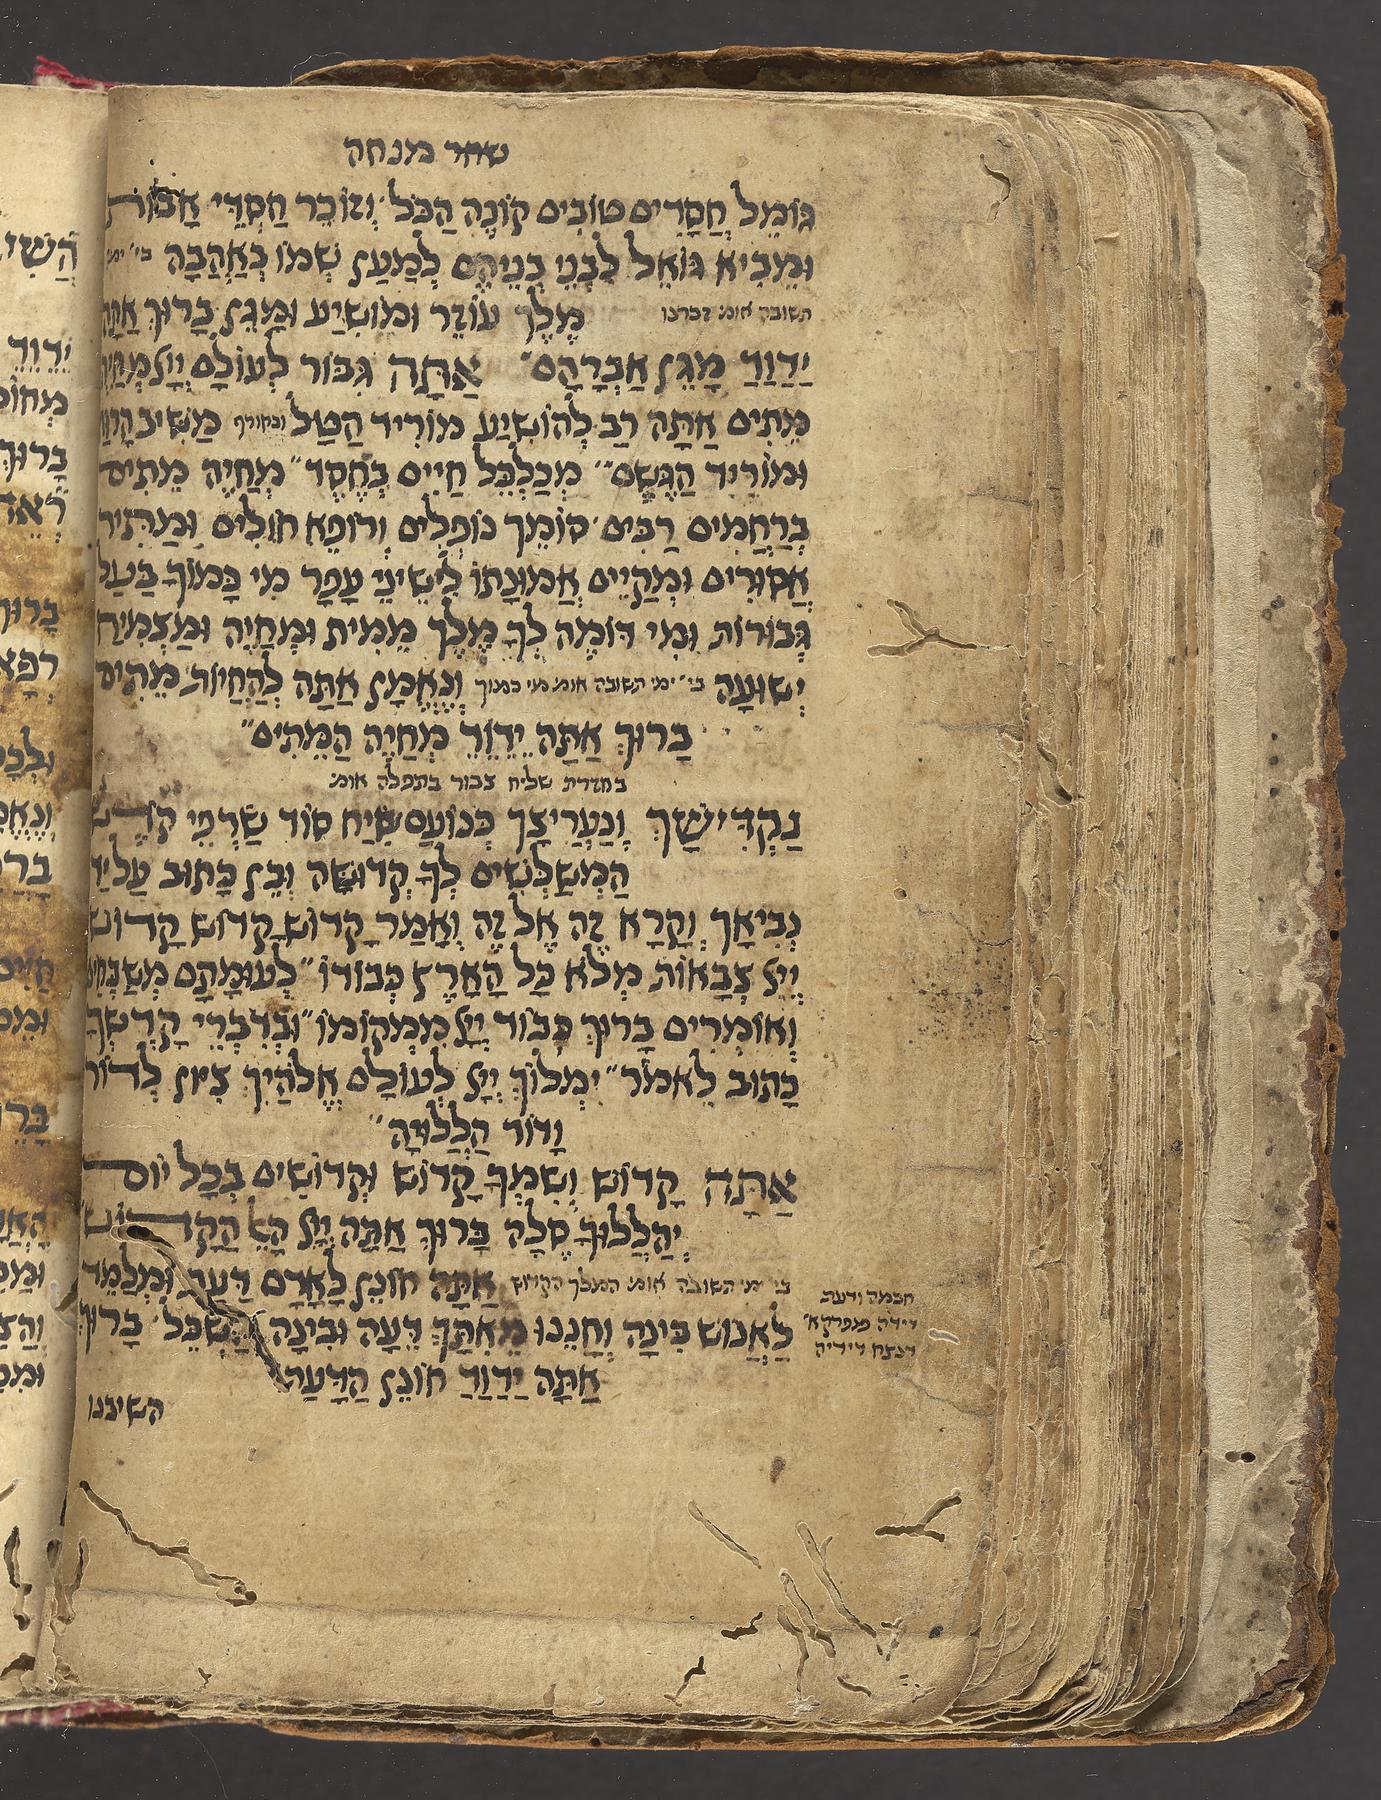 שחר מנחה
גּוֹמֵל חֲסָדִים טוֹבִים קוֹנֵה הַכֹּל וְזוֹכֵר חַסְדֵי אָבוֹת
וּמֵבִיא גּוֹאֵל לִבְנֵי בְנֵיהֶם לְמַעַן שְׁמוֹ בְּאַהֲבָה בי׳ ימי
תשובה אומ׳ זכרנו מֶלֶךְ עוֹזֵר וּמוֹשִׁיעַ וּמָגֵן בָּרוּךְ אַתָּה
יַדַוַדַ מָגֵן אַבְרָהָם אַתָּה גִּבּוֹר לְעוֹלָם יְיָ מְחַיֵה
מֵתִים אַתָּה רַב לְהוֹשִׁיעַ מוֹרִיד הַטַּל ובחורף מַשִּׁיב הָרוּחַ
וּמוֹרִיד הַגֶּשֶׁם מְכַלְכֵּל חַיִּים בְּחֶסֶד מְחַיֶּה מֵתִים
בְּרַחֲמִים רַבִּים סוֹמֵךְ נוֹפְלִים וְרוֹפֵא חוֹלִים וּמַתִּיר
אֲסוּרִים וּמְקַיֵּים אֱמוּנָתוֹ לִישֵׁינֵי עָפָר מִי כָּמוֹךָ בַּעַל
גְּבוּרוֹת וּמִי דּוֹמֶה לְּךָ מֶלֶךְ מֵמִית וּמְחַיֶּה וּמַצְמִיחַ
יְשׁוּעָה בי׳ ימי תשובה אומ׳ מי כמוך וְנֶאֱמָן אַתָּה לְהַחֲיוֹת מֵתִים
בָּרוּךְ אַתָּה יֵדֵוֵדֵ מְחַיֶּה הַמֵּתִים
בחזרת שליח צבור בתפלה אומ׳
נַקְדִּישָׁךְ וְנַעֲרִיצָךְ כְּנוֹעַם שִׂיחַ סוֹד שַׂרְפֵי קֹדֶשׁ
הַמְשַׁלְּשִׁים לְךָ קְדוּשָּׁה וְכֵן כָּתוּב עַל יַד
נְבִיאָךְ וְקָרָא זֶה אֶל זֶה וְאָמַר קָדוֹשׁ קָדוֹשׁ קָדוֹשׁ
יְיָ צְבָאוֹת מְלֹא כָל הָאָרֶץ כְּבוֹדוֹ לְעוּמָּתָם מְשַׁבְּחִים
וְאוֹמְרִים בָּרוּךְ כְּבוֹד יְיָ מִמְּקוֹמוֹ וּבְדִבְרֵי קָדְשְׁךָ
כָּתוּב לֵאמֹר יִמְלוֹךְ יְיָ לְעוֹלָם אֱלֹהַיִךְ צִיּוֹן לְדוֹר
וָדוֹר הַלְלוּיָהּ
אַתָּה קָדוֹשׁ וְשִׁמְךָ קָדוֹשׁ וּקְדוֹשִׁים בְּכָל יוֹם
יְהַלְלוּךָ סֶּלָה בָּרוּךְ אַתָּה יְיָ הָאֵל הַקָּדוֹשׁ
בי׳ ימי תשובה אומ׳ המלך הקדוש אַתָּה חוֹנֵן לְאָדָם דַּעַת וּמְלַמֵּד
לֶאֱנוֹשׁ בִּינָה וְחָנֵּנוּ מֵאִתְּךָ דֵּעָה וּבִינָה וְהַשְׂכֵּל בָּרוּךְ
אַתָּה יַדַוַדַ חוֹנֵן הַדָּעַת
השיבנו
חכמה ודעת